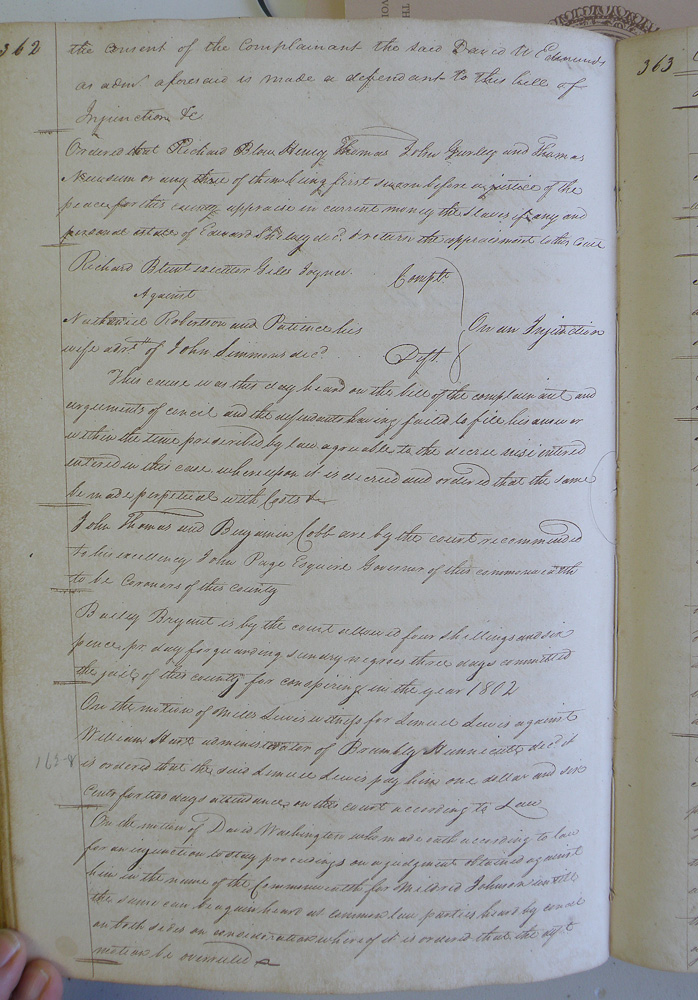 362
the consent of the Complainant the said David W Edmunds
as adm.r aforesaid is made a defendant to this bill of
Injunction &c
Ordered that Richard Blow Henry Thomas John Gurley and Thomas
Newsum or any three of them being first sworn before a justice of the
peace for this county appraise in current money the slaves if any and
personal estate of Edward dec.d & return the appraisment to this Court
Richard Blunt executor Giles Joyner Complt
Against
On an Injunction
Nathaniel Robertson and Patience his
wife of John Simmons dec.d Deft
This cause was this day heard on the bill of the complainant and
arguments of and the defendants having faild to file his answer
within the time prescribed by law agreeable to the decree nisi entered
entered in this case whereupon it is decreed and ordered that the same
be made perpetual with Costs &c
John Thomas and Benjamin Cobb are by the court recommended
to his excellency John Page Esquire Governor of this commonwealth
to be Coroners of this county
Bailey Bryant is by the court allowed four shillings and six
pence pr day for guarding sundry negroes three days committed
the jail of this county for conspiring in the year 1802
On the motion of Miles Lewis witness for Lemuel Lewis against
William Hart administrator of Brambly Hunnicutt dec.d it
is ordered that the said Lemuel Lewes pay him one dollar and six
Cents for two days attendance on this court according to Law
On the motion of David Washington who made oath according to law
for an injunction to stay proceedings on a judgment obtained against
him in the name of the Commonwealth for Mildred Johnson untill
the same can be again heard at common law parties heard by
on both sides on consideration whereof it is ordered that the
motion be overruled
363